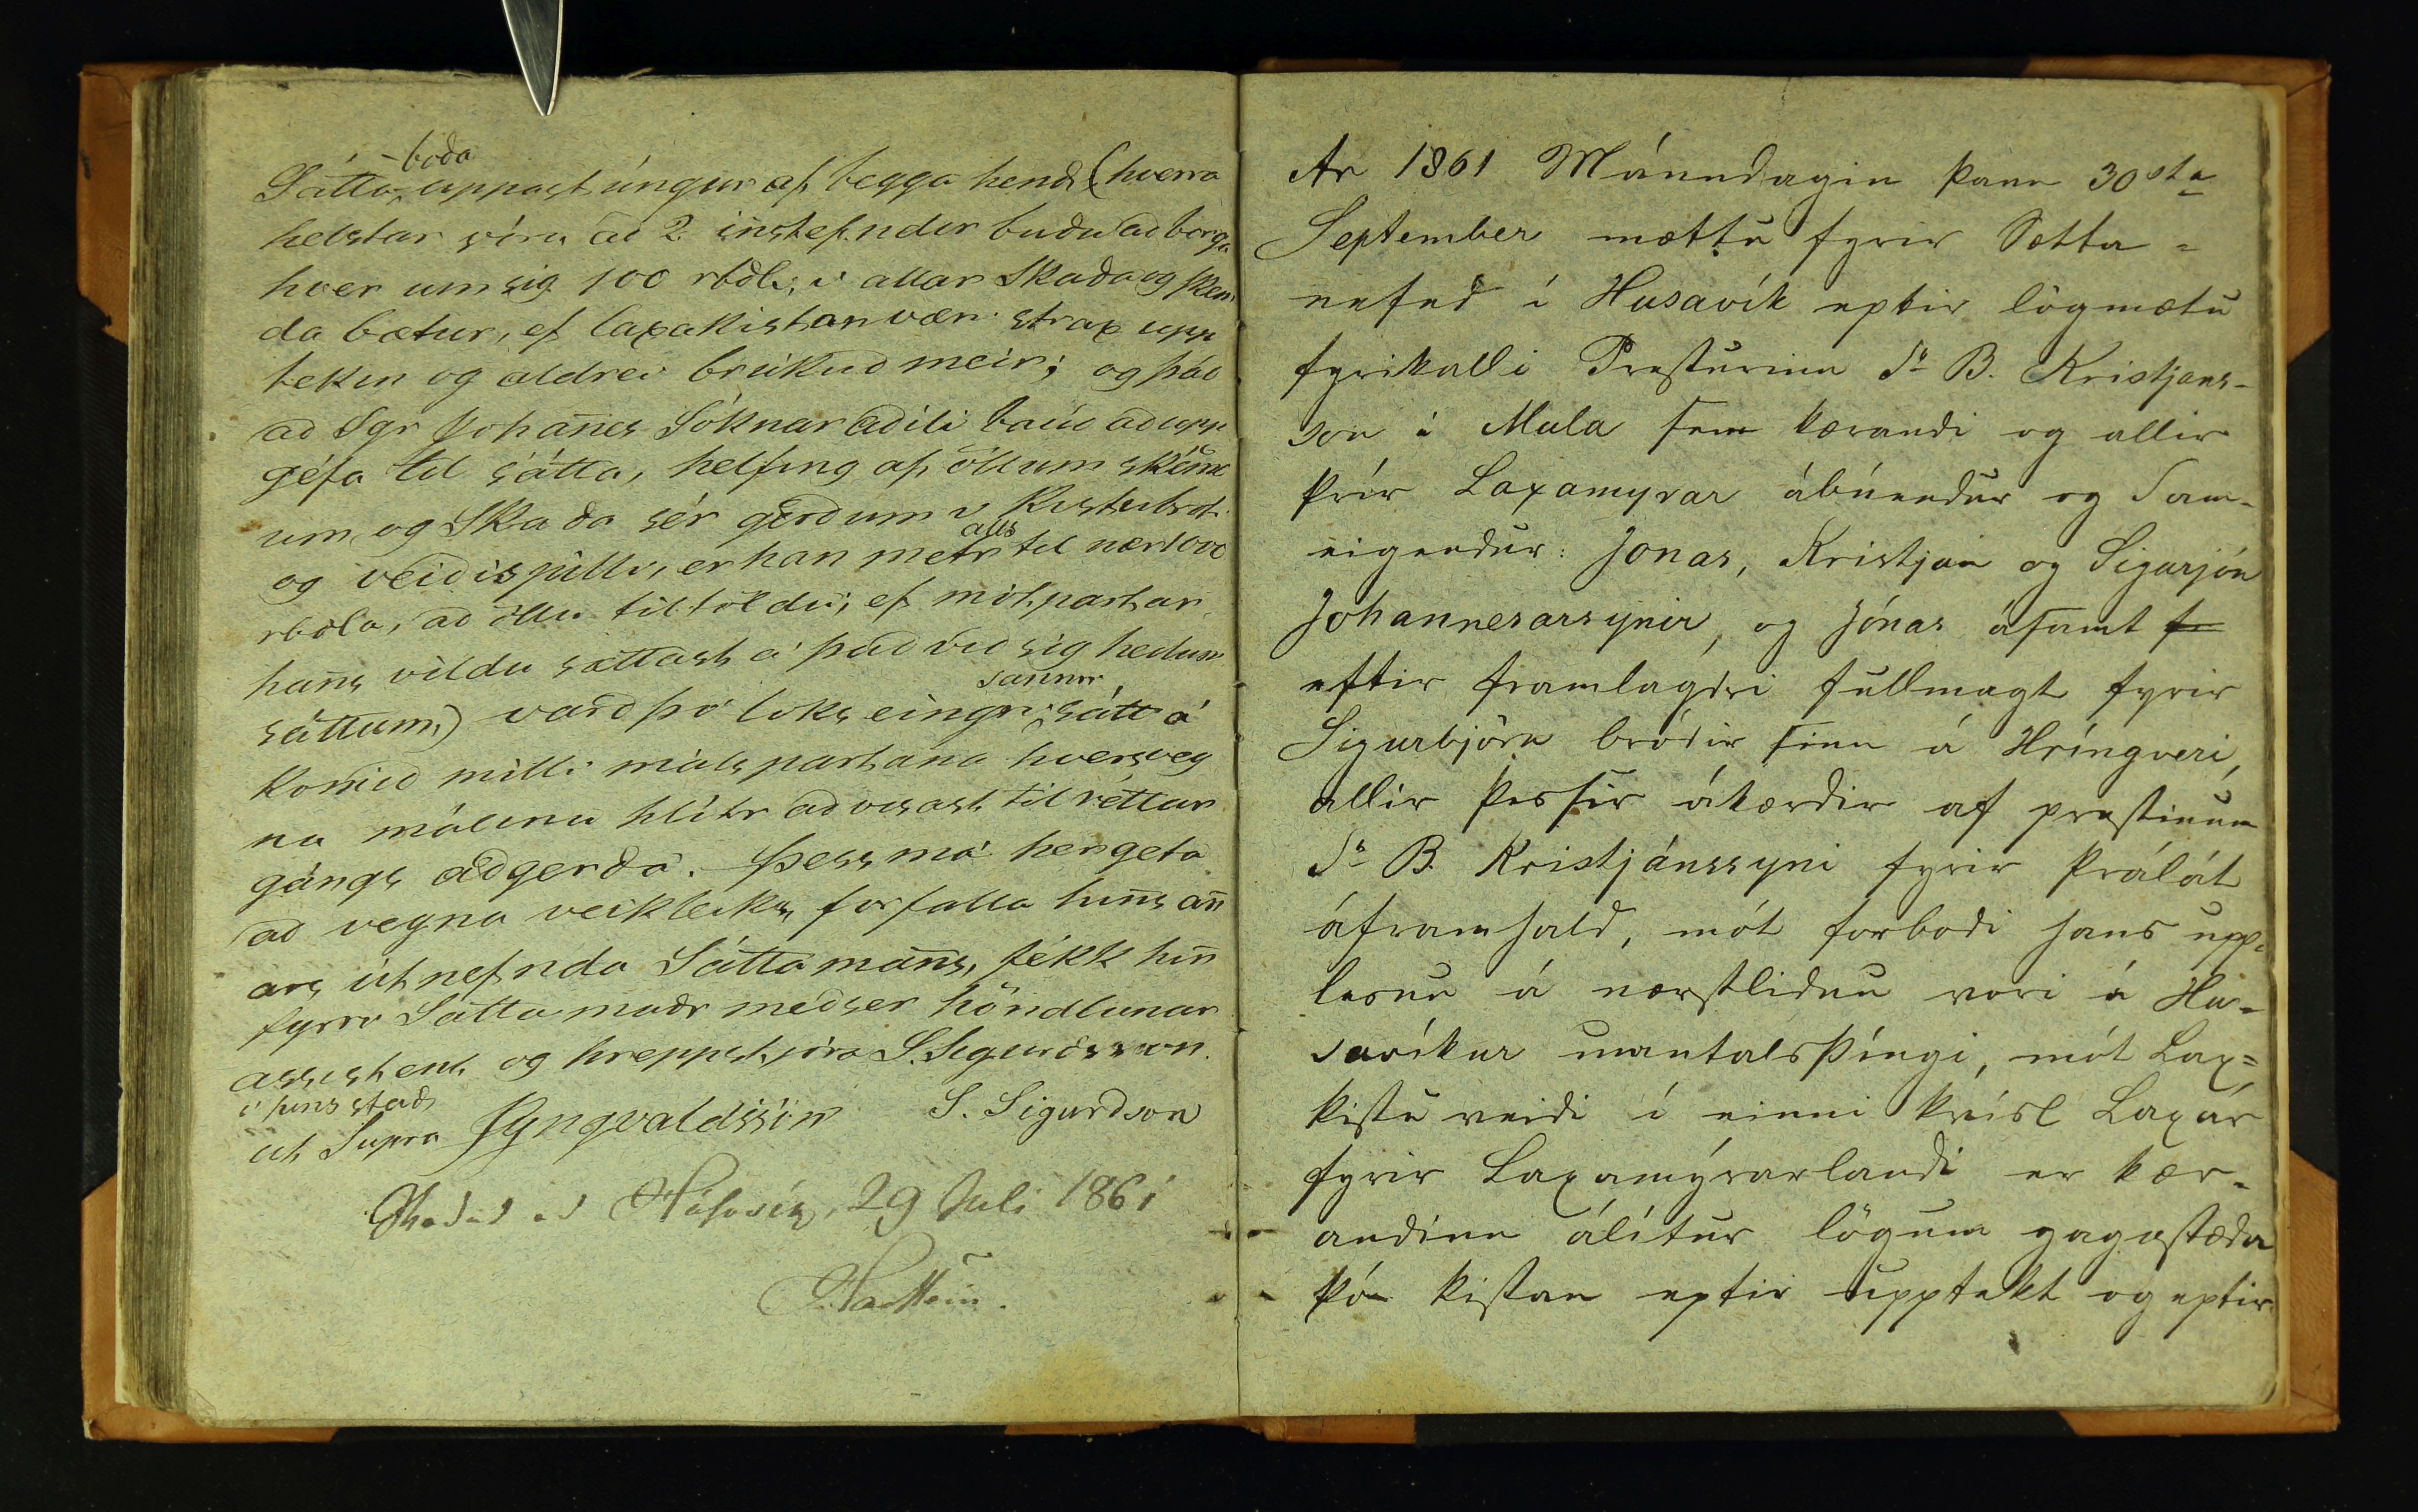 Sátta-boða uppástúngur af beggja hendi (hverra
helstar vóru að 2 instefndir buðu að borga
hver um sig 100 rbdli í allar skaða og skem̄
da bætur, ef laxakistan væri strax upp
tekin og aldrei brúkuð meir; og það
að Sgr Johañes Sóknaraðili bauð að upp
géfa til sátta, helfing af öllum ském̄d
um og skaða sér gerðum í kistubroti
og veiðispilli, er han metr alls til nær 1000
rbdla, að öllu tiltöldu, ef mótpartar
hañs vildu sættast á það við sig heilum
sáttum) varð þó loks eingin sannr sátt á
komið milli málspartana hversveg
na málinu hlítr að vísast til réttar
gángs aðgerða. Þess má hér geta
að vegna veikleiks forfalla hiñs añ
ars útnefnda Sáttamañs, fékk hiñ
fyrri Sáttamaðr með ser höndlunar
assistent og hreppstjóra S. Sigurdsson
í hins stað
ut Supra JYngvaldssön S. Sigurdson
Skodad ad Húsavík, 29 Juli 1861
Ar 1861 Mánudagin þann 30sta
September mættu fyrir Sætta-
nefnd í Husavík eptir lögmætu
fyrikalli Presturinn Sr B. Kristjans-
son í Mula sem kærandi og allir
þrír Laxamyrar ábúendur og Sam-
eigendur: Jonas, Kristjan og Sigurjón
Johannesarsynir, og Jónas ásamt
eftir framlagdri fullmagt fyrir
Sigurbjörn bródir sinn á Hríngveri,
allir þessir ákærdir af prestinum
Sr B. Kristjánssyni fyrir þrálát
áframhald, mót forbodi hans upp-
lesnu á næstlidnu vori á Hu-
savíkur mantalsþíngi, mót Lax-
kistu veidi í einni kvísl Laxár
fyrir Laxamýrarlandi er kær-
andinn álítur lögum gagnstæda
þó kistan eptir upptekt og eptir